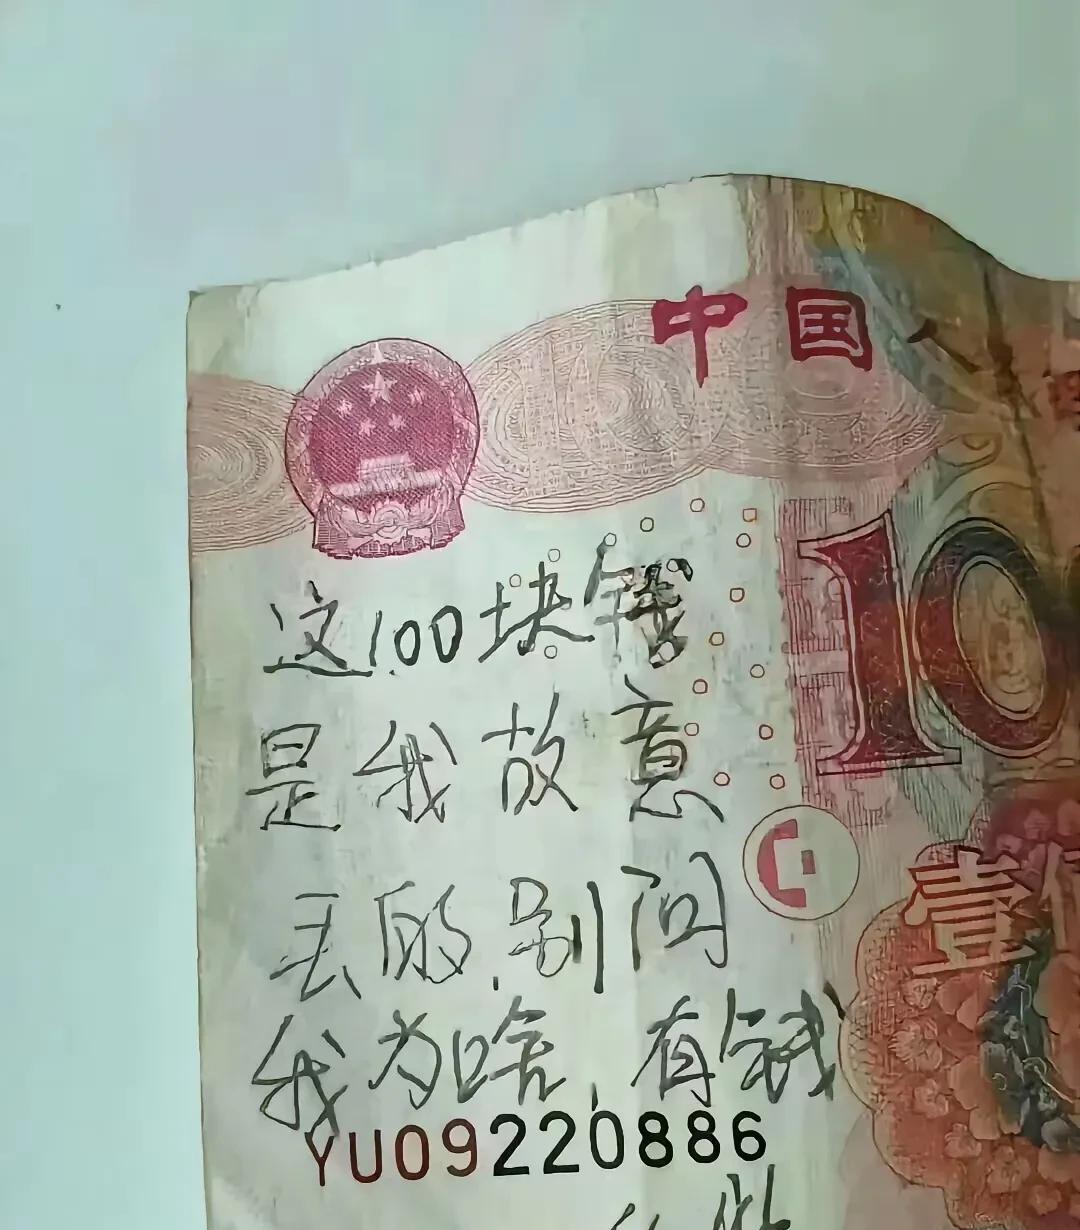 中国人
100
这100块钱
是我故意
丢的,别问
我为啥,有钱
YU09220886
壹佰